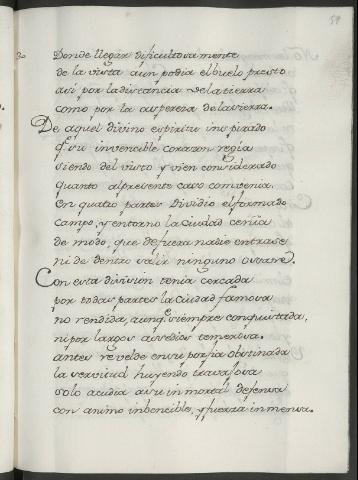 59
3o Donde llegar dificultosamente
de la vista aun podia el buelo presto
asi por la distancia de la tierra
como por la aspereza de la sierra.
De aquel divino espiritu inspirado
q̃ su invencible corazon regia
siendo del visto y vien considerado
quanto al presente caso convenia.
En quatro partes dividio el formado
campo, y entorno la ciudad ceñia
de modo, que de fuera nadie entrase
ni de dentro salir ninguno osase.
Con esta division tenia cercada
por todas partes la ciudad famosa
no rendida, aunq̃ siempre conquistada,
ni por largos assedios temerosa.
antes revelde en su porfia obstinada
la servitud huyendo trabajosa
solo acudia a su inmortal defensa
con animo inbencible, y fuerza inmensa.